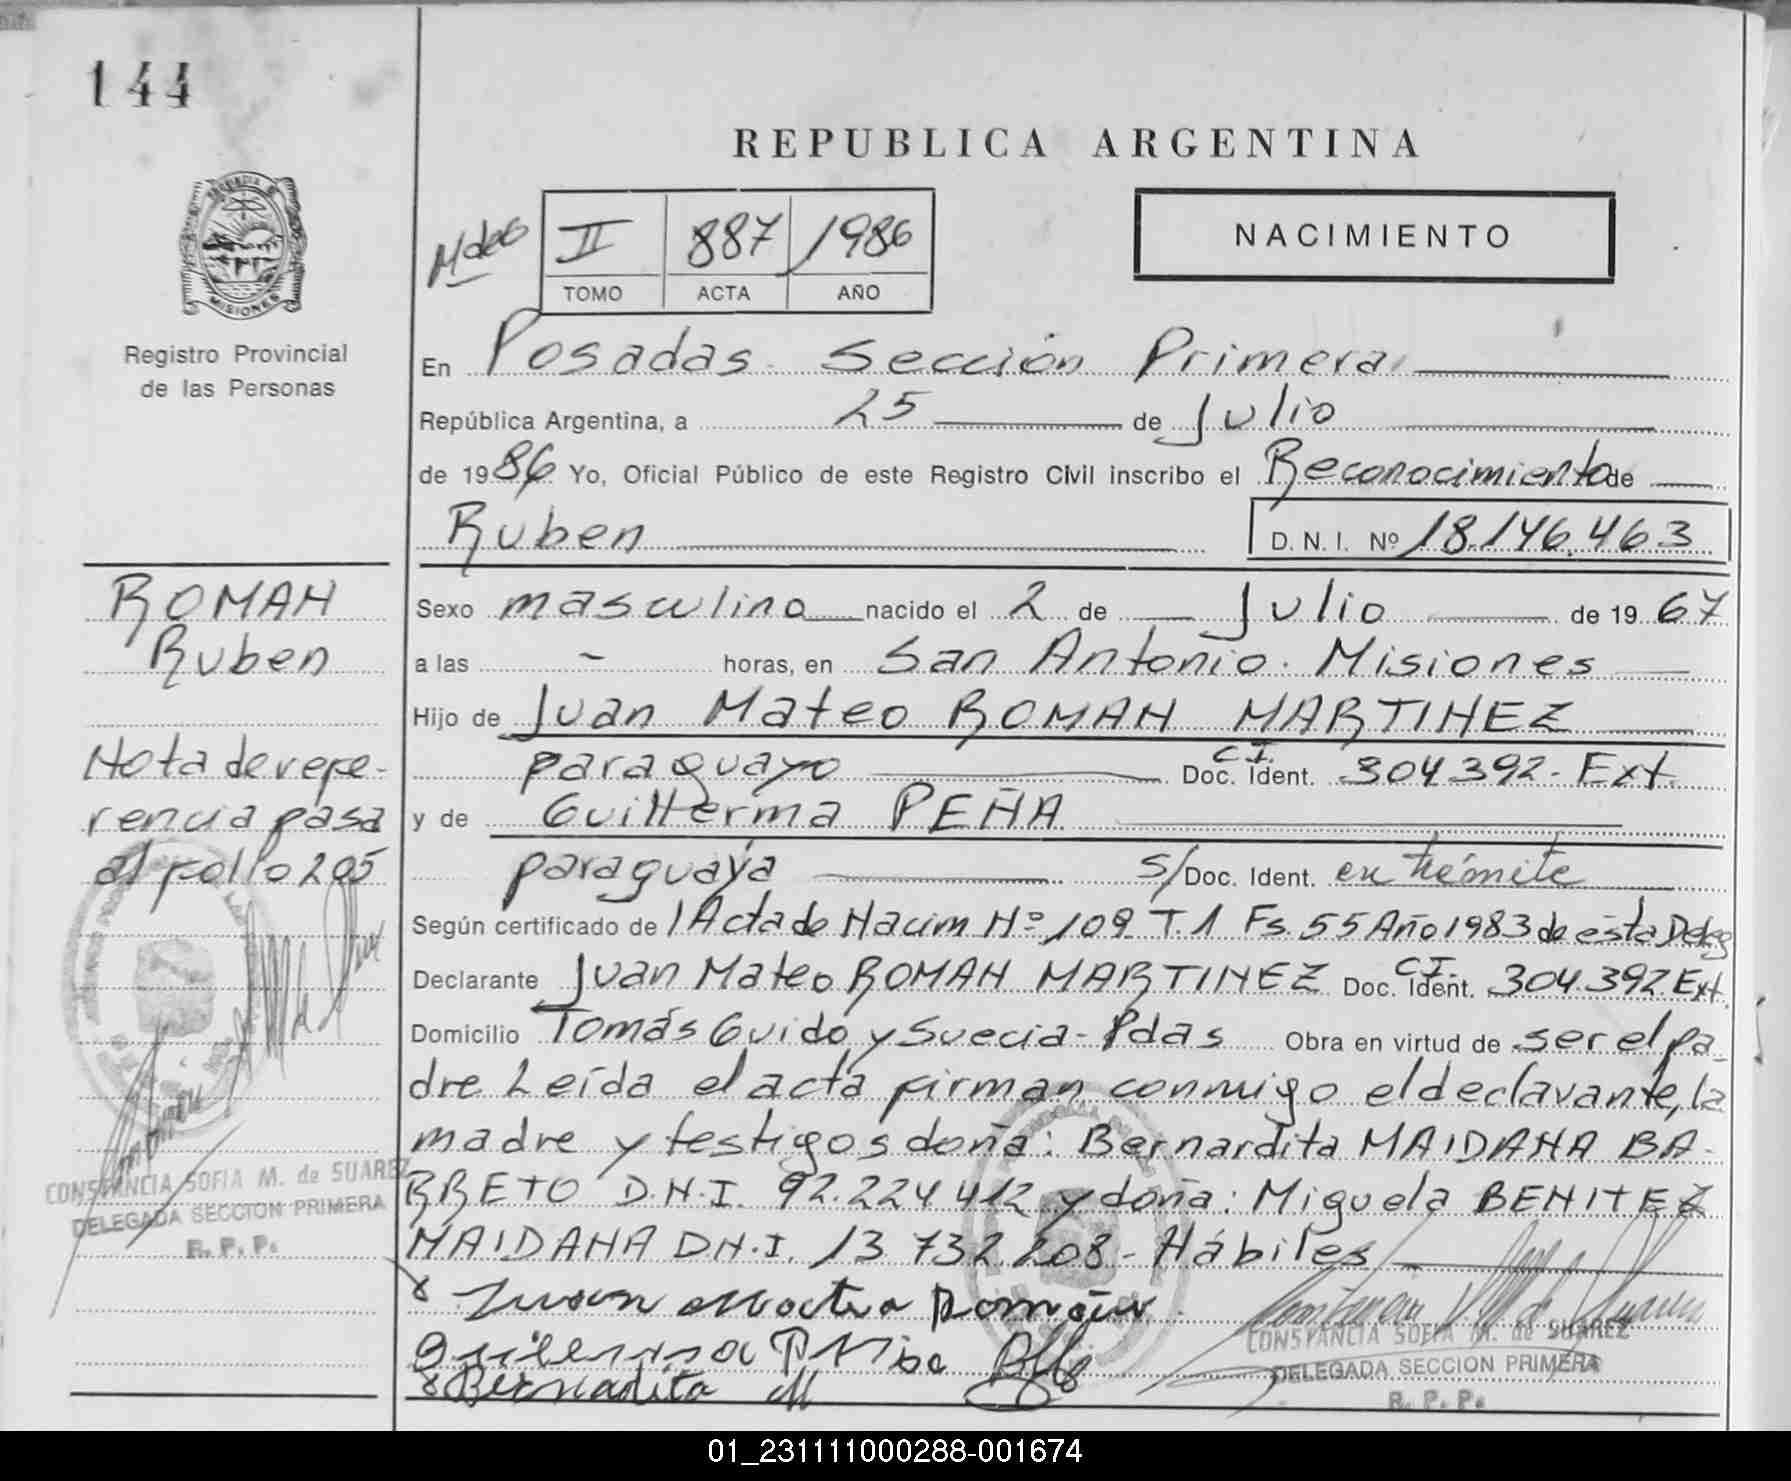 144
REPUBLICA ARGENTINA
PROVINCIA DE
MISIONES
II 887 1986
TOMO ACTA AÑO
NACIMIENTO
Registro Provincial
de las Personas
En Posadas. Sección Primera
República Argentina, a 25 de Julio
de 1986 Yo, Oficial Público de este Registro Civil inscribo el Reconocimiento de
Ruben D. N. I. Nº 18.146.463
ROMAN
Ruben
Sexo masculino nacido el 2 de Julio de 1967
a las - horas, en San Antonio. Misiones
Hijo de Juan Mateo ROMAN MARTINEZ
paraguayo C.I. Doc. Ident. 304.392. Ext.
y de Guillerma PEÑA
paraguaya S/Doc. Ident. en trámite
Nota de refe-
rencia pasa
al follo 205
Según certificado de 1 Acta de Nacim Nº 109 T.1 Fs. 55 Año 1983 de ésta Deleg
Declarante Juan Mateo ROMAN MARTINEZ C.I. Doc. Ident. 304.392 Ext.
Domicilio Tomás Guido y Suecia - Pdas Obra en virtud de ser el pa-
dre Leída el acta firman conmigo el declarante, la
madre y testigos doña: Bernardita MAIDANA BA-
RRETO D.N.I. 92.224.412 y doña: Miguela BENITEZ
MAIDANA D.N.I. 13.732.208 - Hábiles
CONSTANCIA SOFIA M. de SUAREZ
DELEGADA SECCION PRIMERA
R. P. P.
Juan
Bernadita M
CONSTANCIA SOFIA M. de SUAREZ
DELEGADA SECCION PRIMERA
R. P. P.
01_231111000288-001674